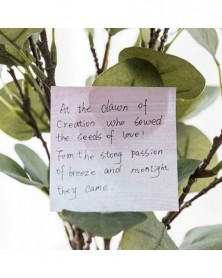 At the dawn of
Creation who sowed
the seeds of love?
From the stong passion
of breeze and moonlight
they came